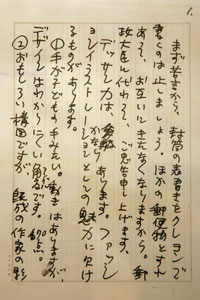 1.
まず若さから、封筒の表書きをクレヨンで
書くのは止しましょう。ほかの郵便物とすれ
あって、お互いにきたなくなりますから。郵
政大臣に代わって、ご忠告申し上げます。
デッサン力はあります。ファッシ
ョンイラストレーションとしての魅力に欠け
るものがあります。
①手が子どもの手みたい。動きはありますが、
デザインはわかりにくい。
②おもしろい構図ですが、既成の作家の影